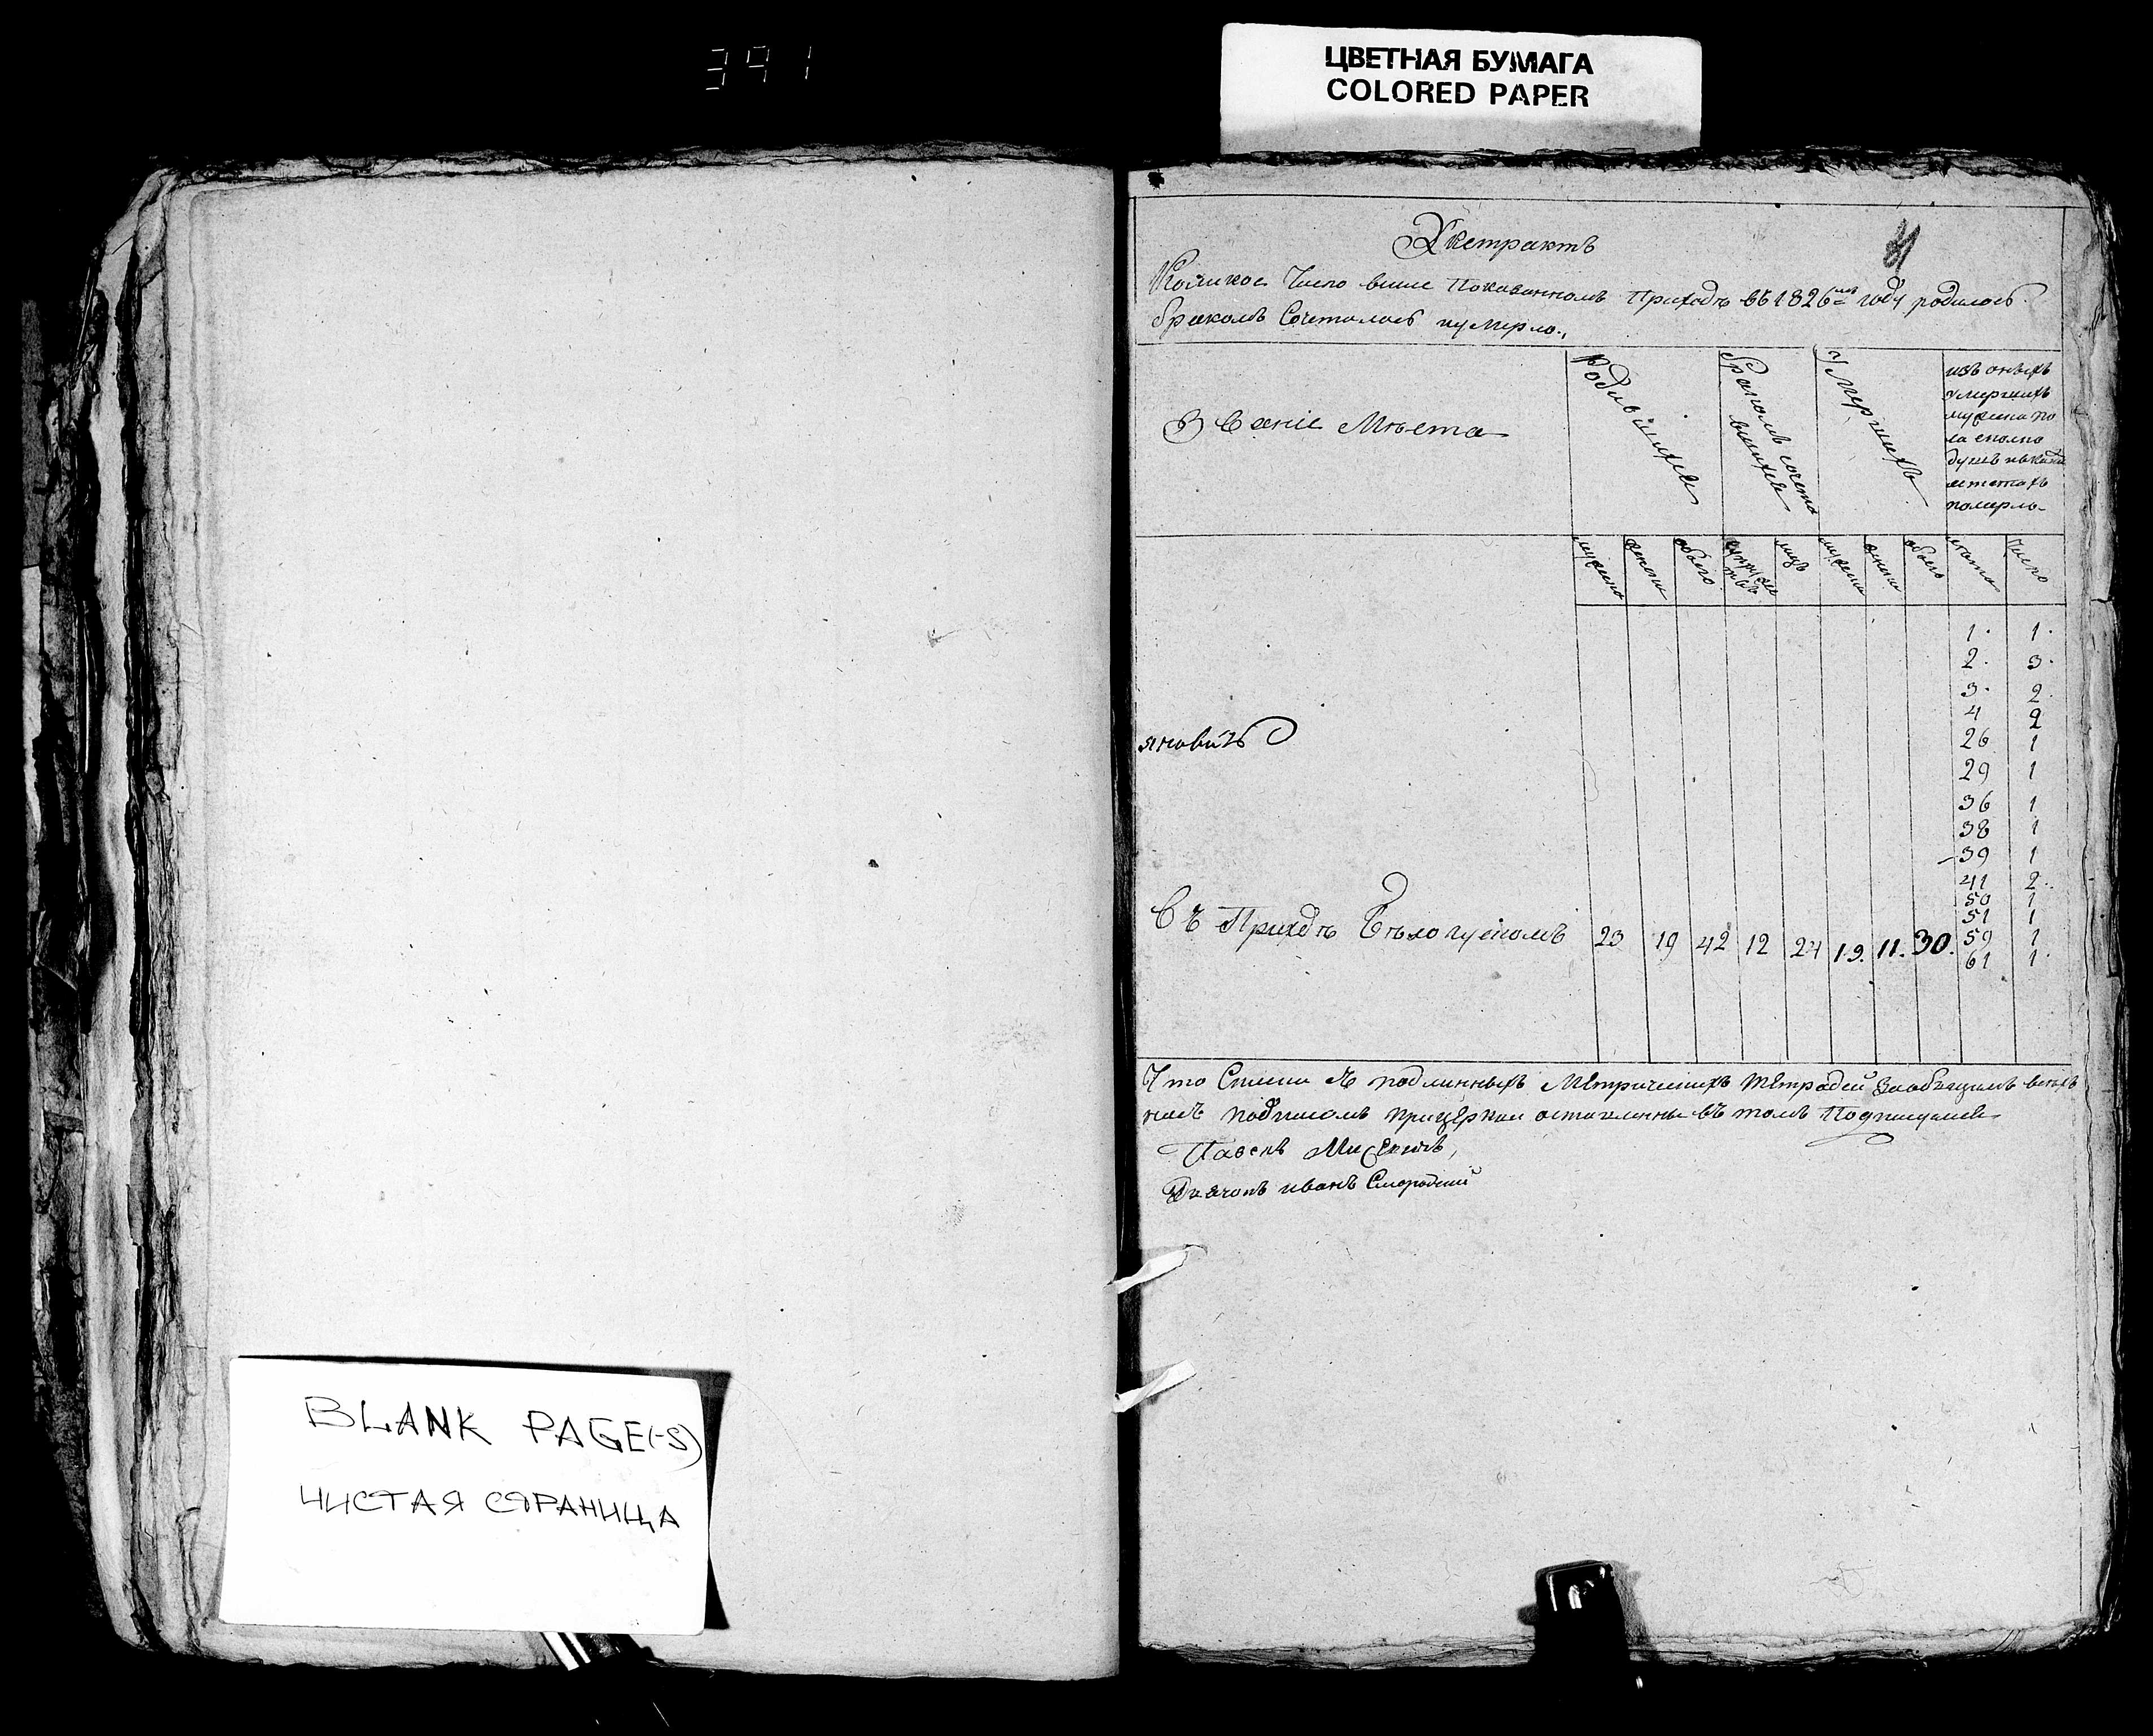 391
ЦВЕТНАЯ БУМАГА
COLORED PAPER
81
Экстрактъ
Коликое Число выше Показанномъ Приходѣ въ 1826мъ году родилось
бракомъ Сочеталось и умерло.
Званіе Мѣста
Родившихся
Бракомъ сочетавшихся
Умершихъ
изъ оныхъ
умершихъ
мужеска по
ла сколко
душъ и въ
летахъ
померло
мужеска
женска
обоего
лицъ
мужеска
женска
обоего
лета
число
1. 1.
2. 3.
3. 2.
4 2
26 1
29 1
36 1
38 1
39 1
41 2.
50 1
51 1
59 1
61 1.
Въ Приходѣ 23 19 42 12 24 19. 11. 30.
Что Списки съ подлинныхъ Метрическихъ тетрадей
подписомъ при церкви оставлены въ томъ Подписуемся
Дьячокъ иванъ
BLANK PAGE(-S)
ЧИСТАЯ СТРАНИЦА